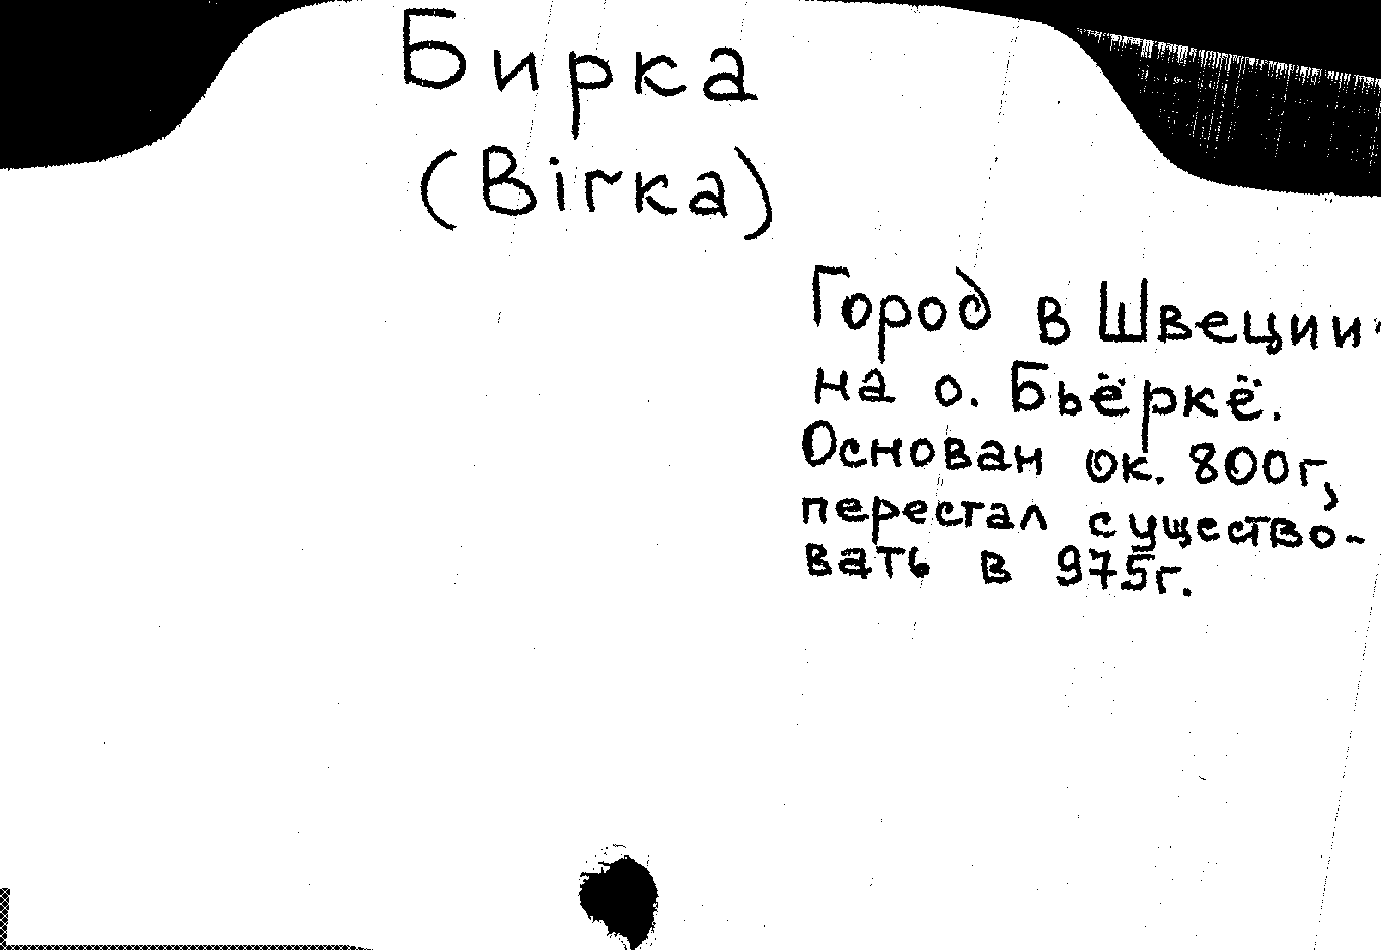 Бирка
(Birka)
Город в Швеции
на о. Бьёркё.
Основан ок. 800г,
перестал существо-
вать в 975г.